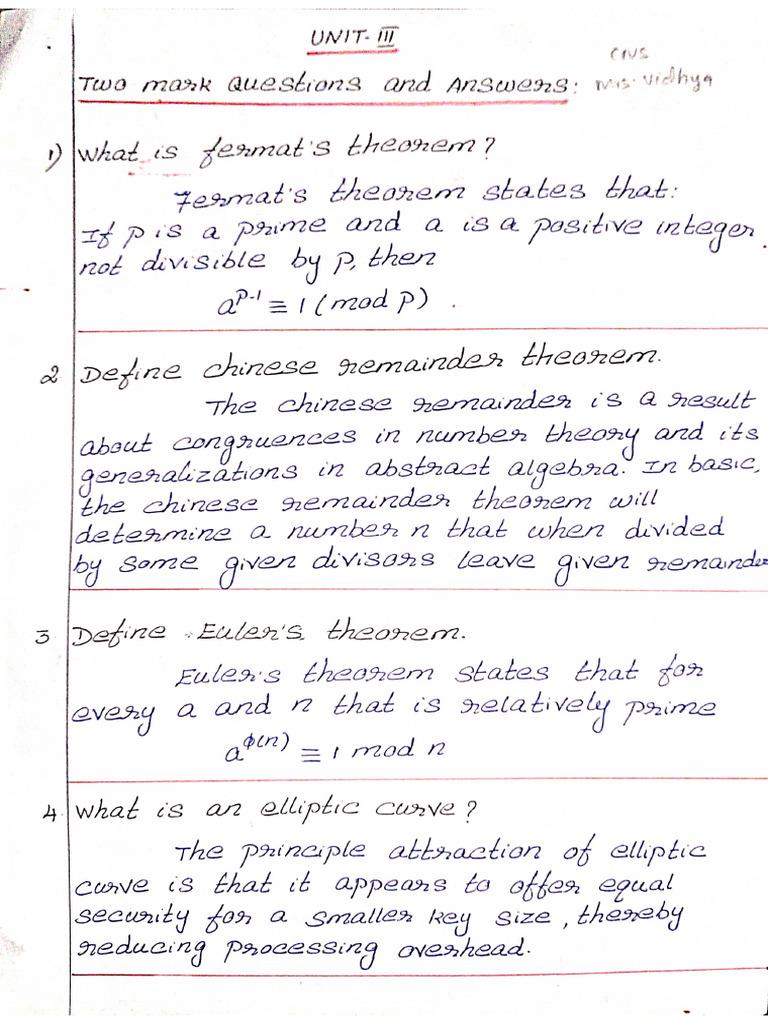 UNIT-III
CNS
Two mark Questions and Answers:
Mrs. Vidhya
1) What is fermat's theorem?
Fermat's theorem states that:
If p is a prime and a is a positive integer
not divisible by p, then
a^{p-1} ≡ 1 (mod p).
2 Define chinese remainder theorem.
The chinese remainder is a result
about congruences in number theory and its
generalizations in abstract algebra. In basic,
the chinese remainder theorem will
determine a number n that when divided
by some given divisors leave given remainder
3 Define Euler's theorem.
Euler's theorem states that for
every a and n that is relatively prime
a^{φ(n)} ≡ 1 mod n
4 What is an elliptic curve?
The principle attraction of elliptic
curve is that it appears to offer equal
security for a smaller key size, thereby
reducing processing overhead.